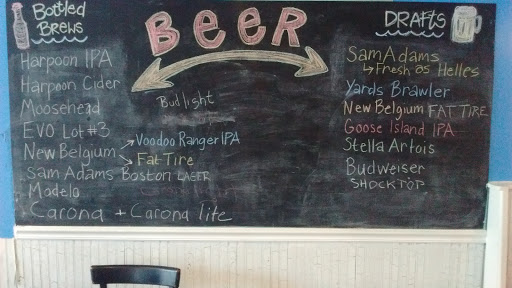 Bottled
Brews
BEER
DRAFTS
Harpoon IPA
Harpoon Cider
Moosehead
EVO Lot #3
New Belgium
Voodoo Ranger IPA
Fat Tire
Sam Adams Boston LAGER
Modelo
Carona + Carona lite
Bud light
Sam Adams
Fresh as Helles
Yards Brawler
New Belgium FAT TIRE
Goose Island IPA
Stella Artois
Budweiser
SHOCKTOP